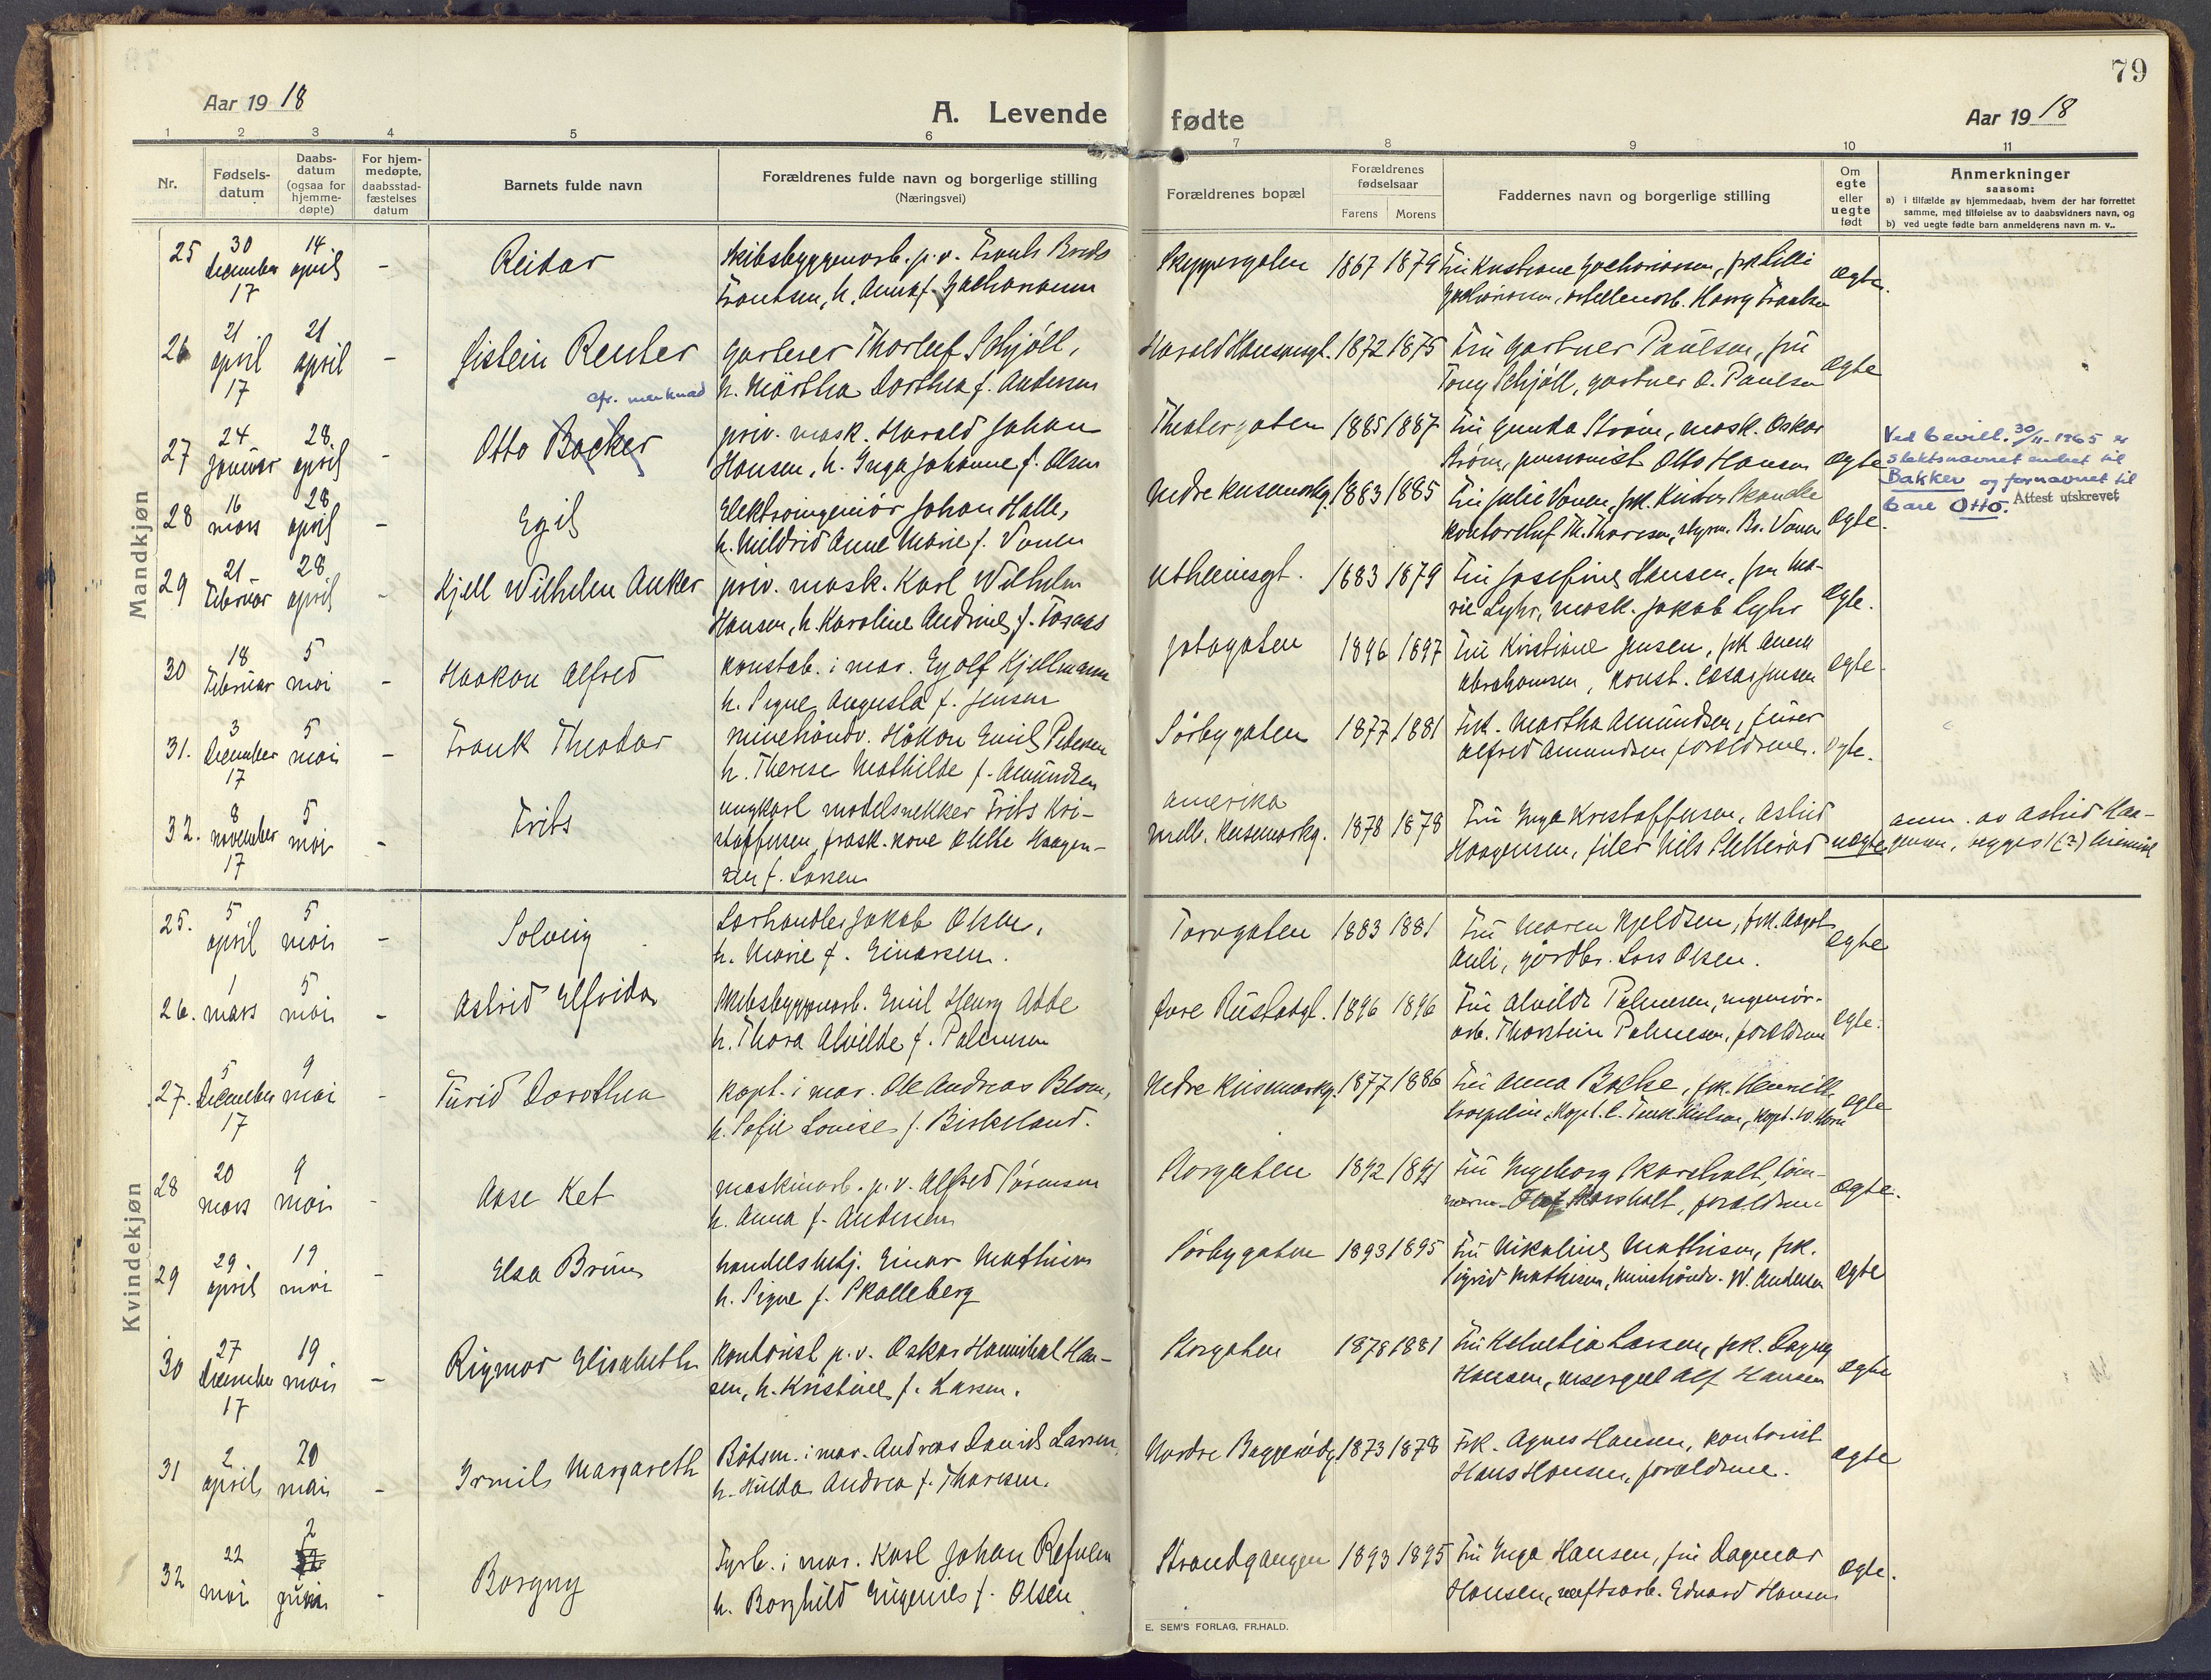 79
Aar 1918
A. Levende fødte
Aar 1918
1 2 3 4 5 6 7 8 9 10 11
Nr.
Fødsels-
datum
Daabs-
datum
(ogsaa for
hjemme-
døpte)
For hjem-
medøpte,
daabsstad-
fæstelses
datum
Barnets fulde navn
Forældrenes fulde navn og borgerlige stilling
(Næringsvei)
Forældrenes bopæl
Forældrenes
fødselsaar
Farens Morens
Faddernes navn og borgerlige stilling
Om
egte
eller
uegte
født
Anmerkninger
saasom:
a) i tilfælde av hjemmedaab, hvem der har forrettet
samme, med tilføielse av to daabsvidners navn, og
b) ved uegte fødte barn anmelderens navn m. v..
Mandkjøn
25 30 december 17 14 april - Reidar
Skibsbyggerarb. p.v. Frants
Frantsen, h. Anna f. Zachariassen
Skippergaten 1867 1879 Fru Kristiane Zachariassen, frk. Lilli
Zachariassen, Harry Frantsen
egte.
26 21 april 17 21 april - Eistein Reuter
gartner Thorleif Schjöll,
h. Märtha Dorthea f. Andersen
Harald Haarsgt. 1872 1875 Fru gartner Paulsen, fru
Tony Schjöll, gartner O. Paulsen
egte
cfr. merknad
27 24 januar 28. april - Otto Backer
priv. mask. Harald Johan
Hansen, h. Inga Johanne f. Olsen
Theatergaten 1885 1887 Fru Gunda Strøm, mask. Oskar
Strøm, pensionist Otto Hansen
egte
Ved bevill. 30/11-1965 er
slektsnavnet endret til
Bakker og fornavnet til
bare Otto. Attest utskrevet
28 16 mars 28 april - Egil
Elektroingeniör Johan Halle,
h. Mildrid Anne Marie f. Vonen
Nedre Keisemarkg. 1883 1885 Fru Julie Vonen, frk. Skandle
kontorchef Th. Thoresen, styrm. Br. Vonen
egte.
29 21 februar 28 april - Kjell Wilhelm Anker
priv. mask. Karl Wilhelm
Hansen, h. Karoline Andrine f. Foraas
1883 1879 Fru Josefine Hansen, fru Ma-
rie Lyhr, mask. Jakob Lyhr
egte.
30 18 februar 5 mai - Haakon Alfred
konstab. i mar. Eyolf Kjellmann
h. Signe Augusta f. Jensen
Gøtagaten 1896 1897 Fru Kristiane Jensen, frk Anna
Abrahamsen, konst. Cæsar Jensen
egte.
31. 3 december 17 5 mai - Frank Theodor
minehåndv. Håkon Emil Petersen
h. Therese Mathilde f. Amundsen
Sørbygaten 1877 1881 Frk. Martha Amundsen,
Alfred Amundsen forældrene.
egte.
32. 8 november 17 5 mai - Frits
ungkarl modelsnekker Frits Kri-
stoffersen, frask. kone Othilie Haagen-
sen f. Larsen
Amerika
mell. Keisemarkg. 1878 1878 Fru Inga Kristoffersen, Astrid
Haagensen, filer Nils Sletterød
uegte
anm. av Astrid Haa-
gensen, begges 1 (?)
Kvindekjøn
25. 5 april 5 mai - Solveig
Lærhandler Jakob Olsen,
h. Marie f. Einarsen.
Torvgaten 1883 1881 Fru Maren Kjeldsen, frk. Aagot
Auli, gårdbr. Lars Olsen.
egte
26. 1 mars 5 mai - Astrid Elfrida
Skibsbyggerarb. Emil Henry Abbe
h. Thora Alvilde f. Palmesen
øvre Rustadgt. 1896 1896 Fru Alvilde Palmesen, ingeniör-
arb. Thorstein Palmesen, forældrene
egte.
27. 5 december 17 9 mai - Turid Dorothea
kapt. i mar. Ole Andreas Blom,
h. Sofie Louise f. Birkeland.
Nedre Keisemarkg. 1877 1886 Fru Anna Bache, frk. Henriette
Kroepelin, kapt. C. Tank Nielsen, kapt. W. Horn
egte
28 20 mars 9 mai - Aase Ket
maskinarb. p.v. Alfred Sörensen
h. Anna f. Andersen
Storgaten 1892 1891 Fru Ingeborg Skarsholt, töm-
merm. Olaf Skarsholt, forældrene
egte.
29 29. april 19 mai - Elsa Bruun
handelsbetj. Einar Mathisen
h. Signe f. Skalleberg
Sørbygaten 1893 1895 Fru Nikoline Mathisen, frk.
Sigrid Mathisen, minehåndv. W. Andersen
egte
30 27 december 17 19 mai - Rigmor Elisabeth
kontorist p.v. Oskar Hannibal Han-
sen, h. Kristine f. Larsen.
Storgaten 1878 1881 Fru Helvetia Larsen, frk. Dagny
Hansen, visergut Alf Hansen
egte
31 2 april 20 mai - Irmild Margareth
Båtsm. i mar. Andreas David Larsen,
h. Hulda Andrea f. Thoresen.
Nordre Baggerødg. 1873 1878 Frk. Agnes Hansen, kontorist
Hans Hansen, forældrene.
egte
32 22 mai 2 juni - Borgny
Fyrb. i mar. Karl Johan Refvem
h. Borghild Eugenie f. Olsen
Strandgangen 1893 1895 Fru Inga Hansen, fru Dagmar
Hansen, verftsarb. Edvard Hansen
egte.
E. SEM'S FORLAG, FR.HALD.